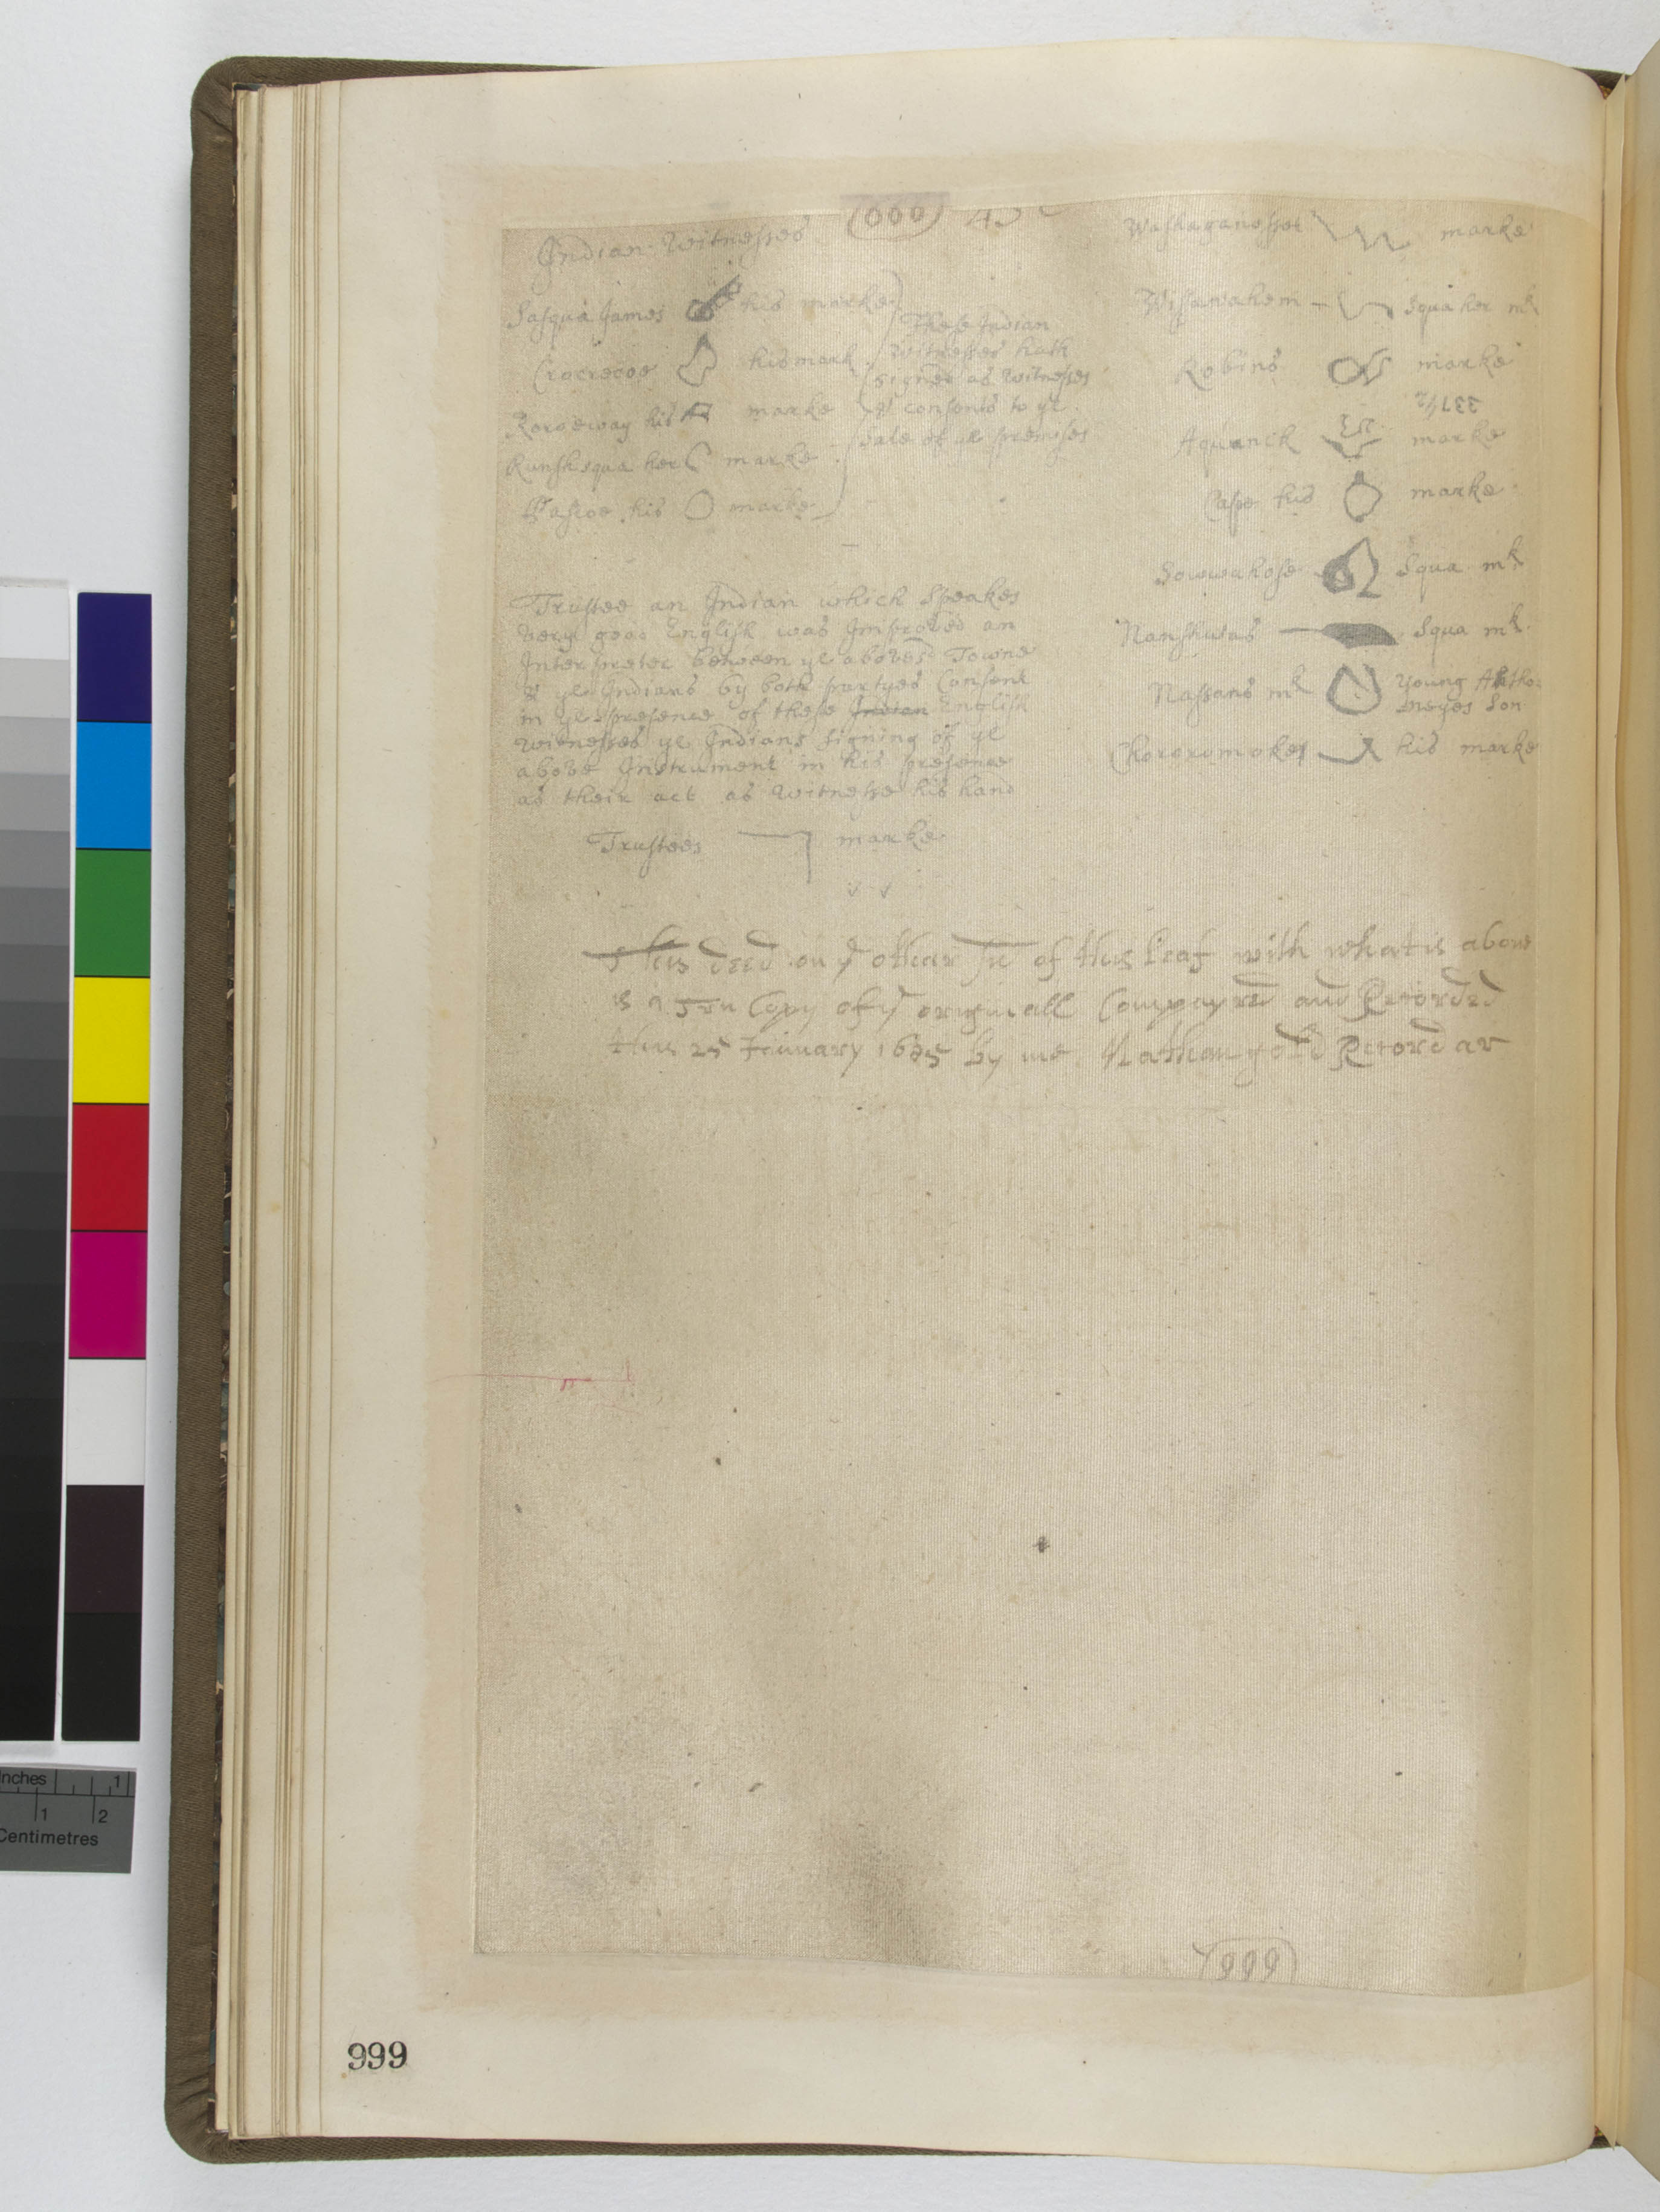 (666) 43
Indian Witnesses
Sasqua James his marke
Crocrecoe his mark
Roroeway his marke
Runsh squa her marke
Pascoe his marke
These Indian
Witnesses hath
signed as Witnesses
& consents to ye
Sale of ye premises
Trustee an Indian which Speakes
very good English was Improved an
Interpreter between ye abovesd Towne
& ye Indians by both partyes Consent
in ye presence of these Indian English
Witnesses ye Indians signing of ye
above Instrument in his presence
as their act as Witnesse his hand
Trustees marke
Waskaganosset marke
Wissawahem Squa her mk
Robins marke
337½
Aquanck marke
Caspe his marke
Sowwahose Squa mk
Nanshwas Squa mk
Nassans mk young
meyes Son
Chororomokes his marke
this deed on ye other side of this leaf with what is above
is a Tru Copy of ye originall Compayred and Recorded
this 25 January 1685 by me Nathan gold Recordar
(999)
999
Inches 1
1 2
Centimetres